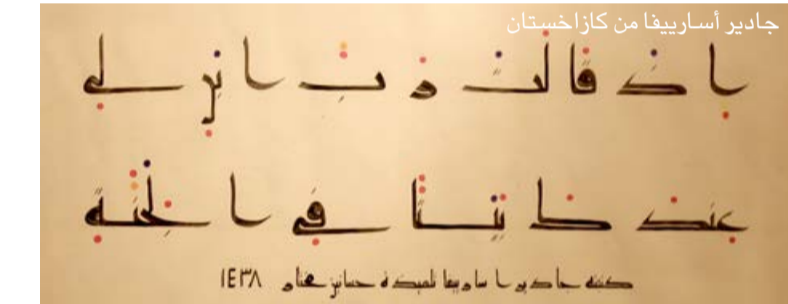 جادير أسارييفا من كازاخستان
إذ قالت رب ابن لي
عندك بيتا في الجنة
كتبته جادير اسارييفا تلميذة حسانين مختار ١٤٣٨